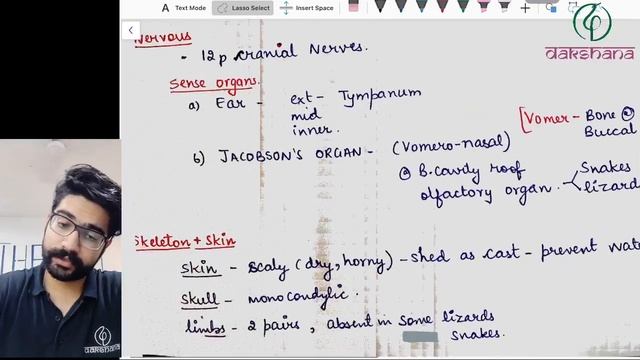 Text Mode Lasso Select Insert Space
dakshana
Nervous
- 12p cranial Nerves.
Sense organs.
a) Ear - ext - Tympanum
mid
inner.
[Vomer - Bone @
Buccal
b) JACOBSON'S ORGAN - (Vomero-nasal)
@ B.Cavity roof
olfactory organ. Snakes
lizard
Skeleton + Skin
Skin - Scaly (dry, horny) - shed as cast - prevent wat
Skull - monocondylic.
limbs - 2 pairs, absent in some lizards
snakes.
dakshana